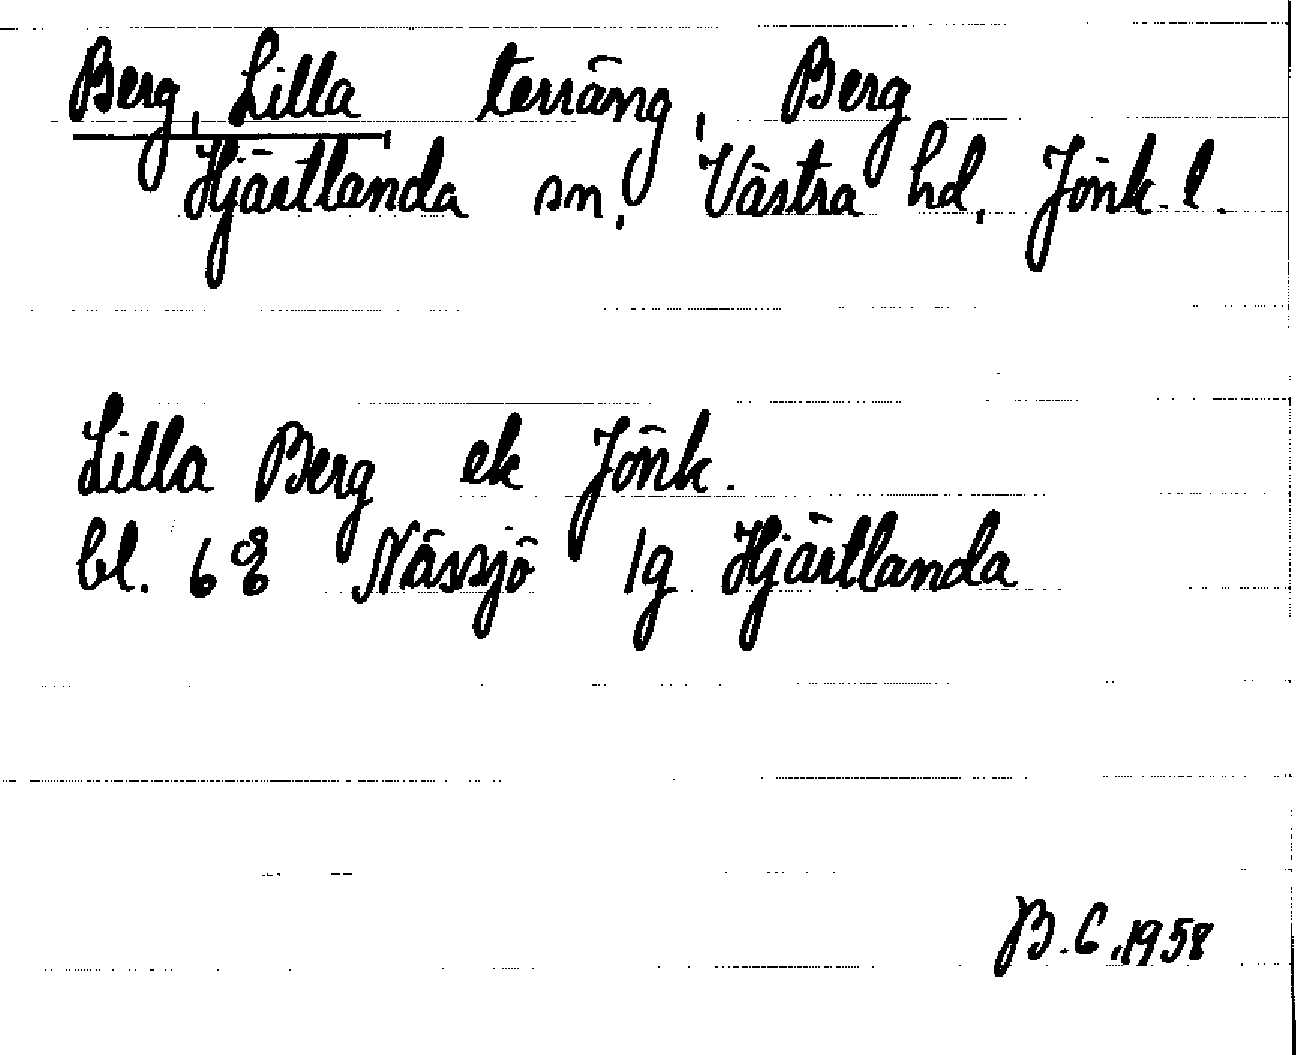 Berg, Lilla, terräng, Berg
Hjärtlanda sn, Västra hd, Jönk. l.
Lilla Berg ek Jönk.
bl. 68 Nässjö lg Hjärtlanda
B.C. 1958